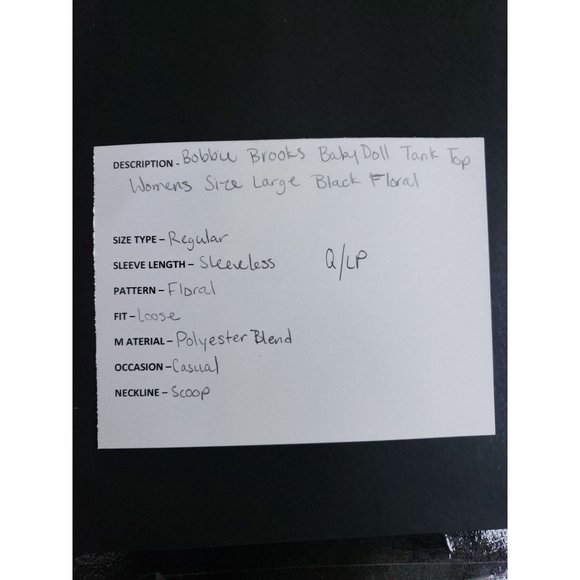 DESCRIPTION - Bobbie Brooks Baby Doll Tank Top
Womens Size Large Black Floral
SIZE TYPE - Regular
SLEEVE LENGTH - Sleeveless Q/LP
PATTERN - Floral
FIT - Loose
MATERIAL - Polyester Blend
OCCASION - Casual
NECKLINE - Scoop